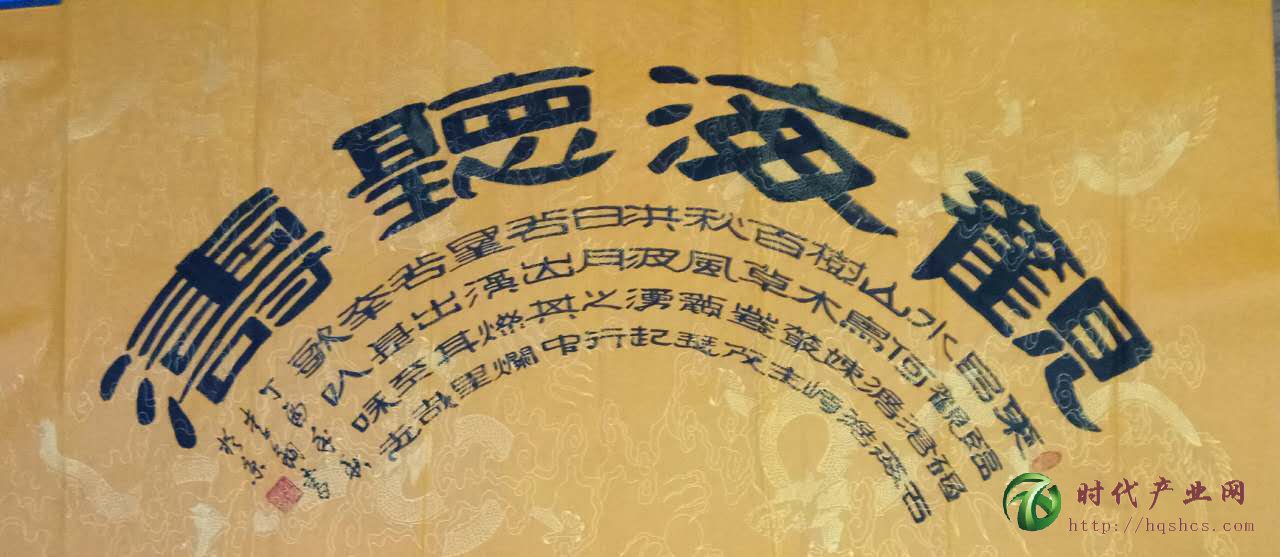 觀海聽濤
東臨碣石
以觀滄海
水何澹澹
山島竦峙
樹木叢生
百草豐茂
秋風蕭瑟
洪波湧起
日月之行
若出其中
星漢燦爛
若出其里
幸甚至哉
歌以咏志
丁酉年秋
書
於京
时代产业网
http://hqshcs.com